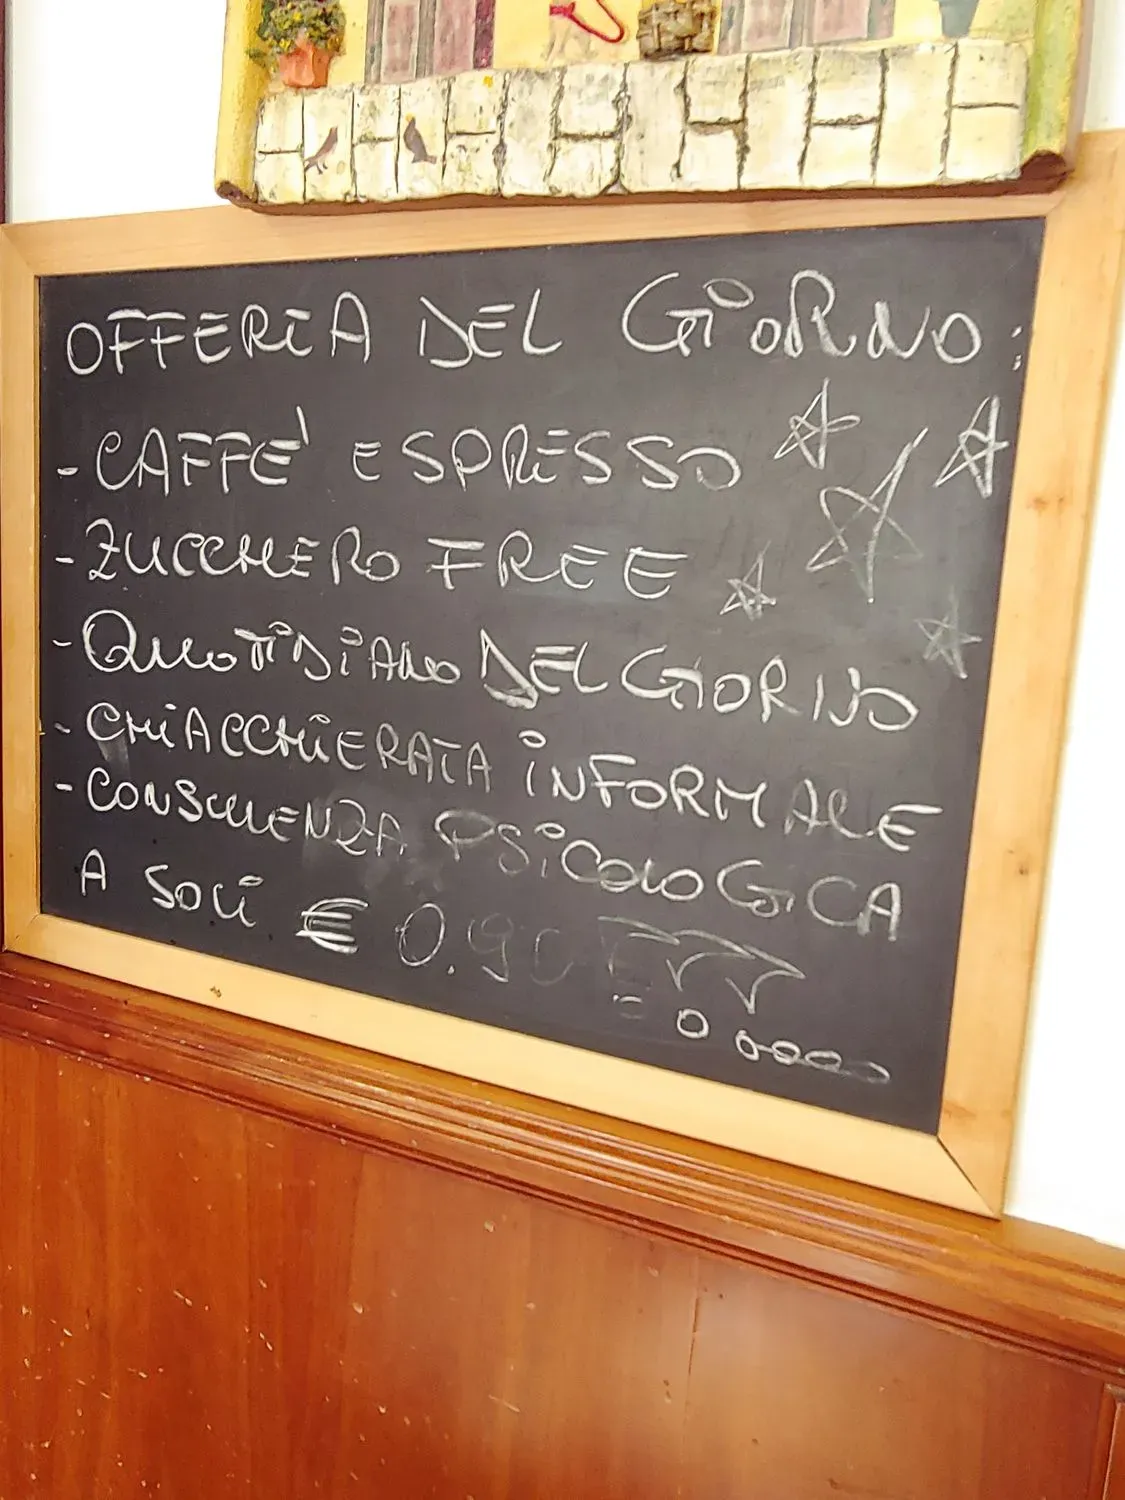 OFFERTA DEL GIORNO:
- CAFFE' ESPRESSO
- ZUCCHERO FREE
- QUOTIDIANO DEL GIORNO
- CHIACCHIERATA INFORMALE
- CONSULENZA PSICOLOGICA
A SOLI € 0.90